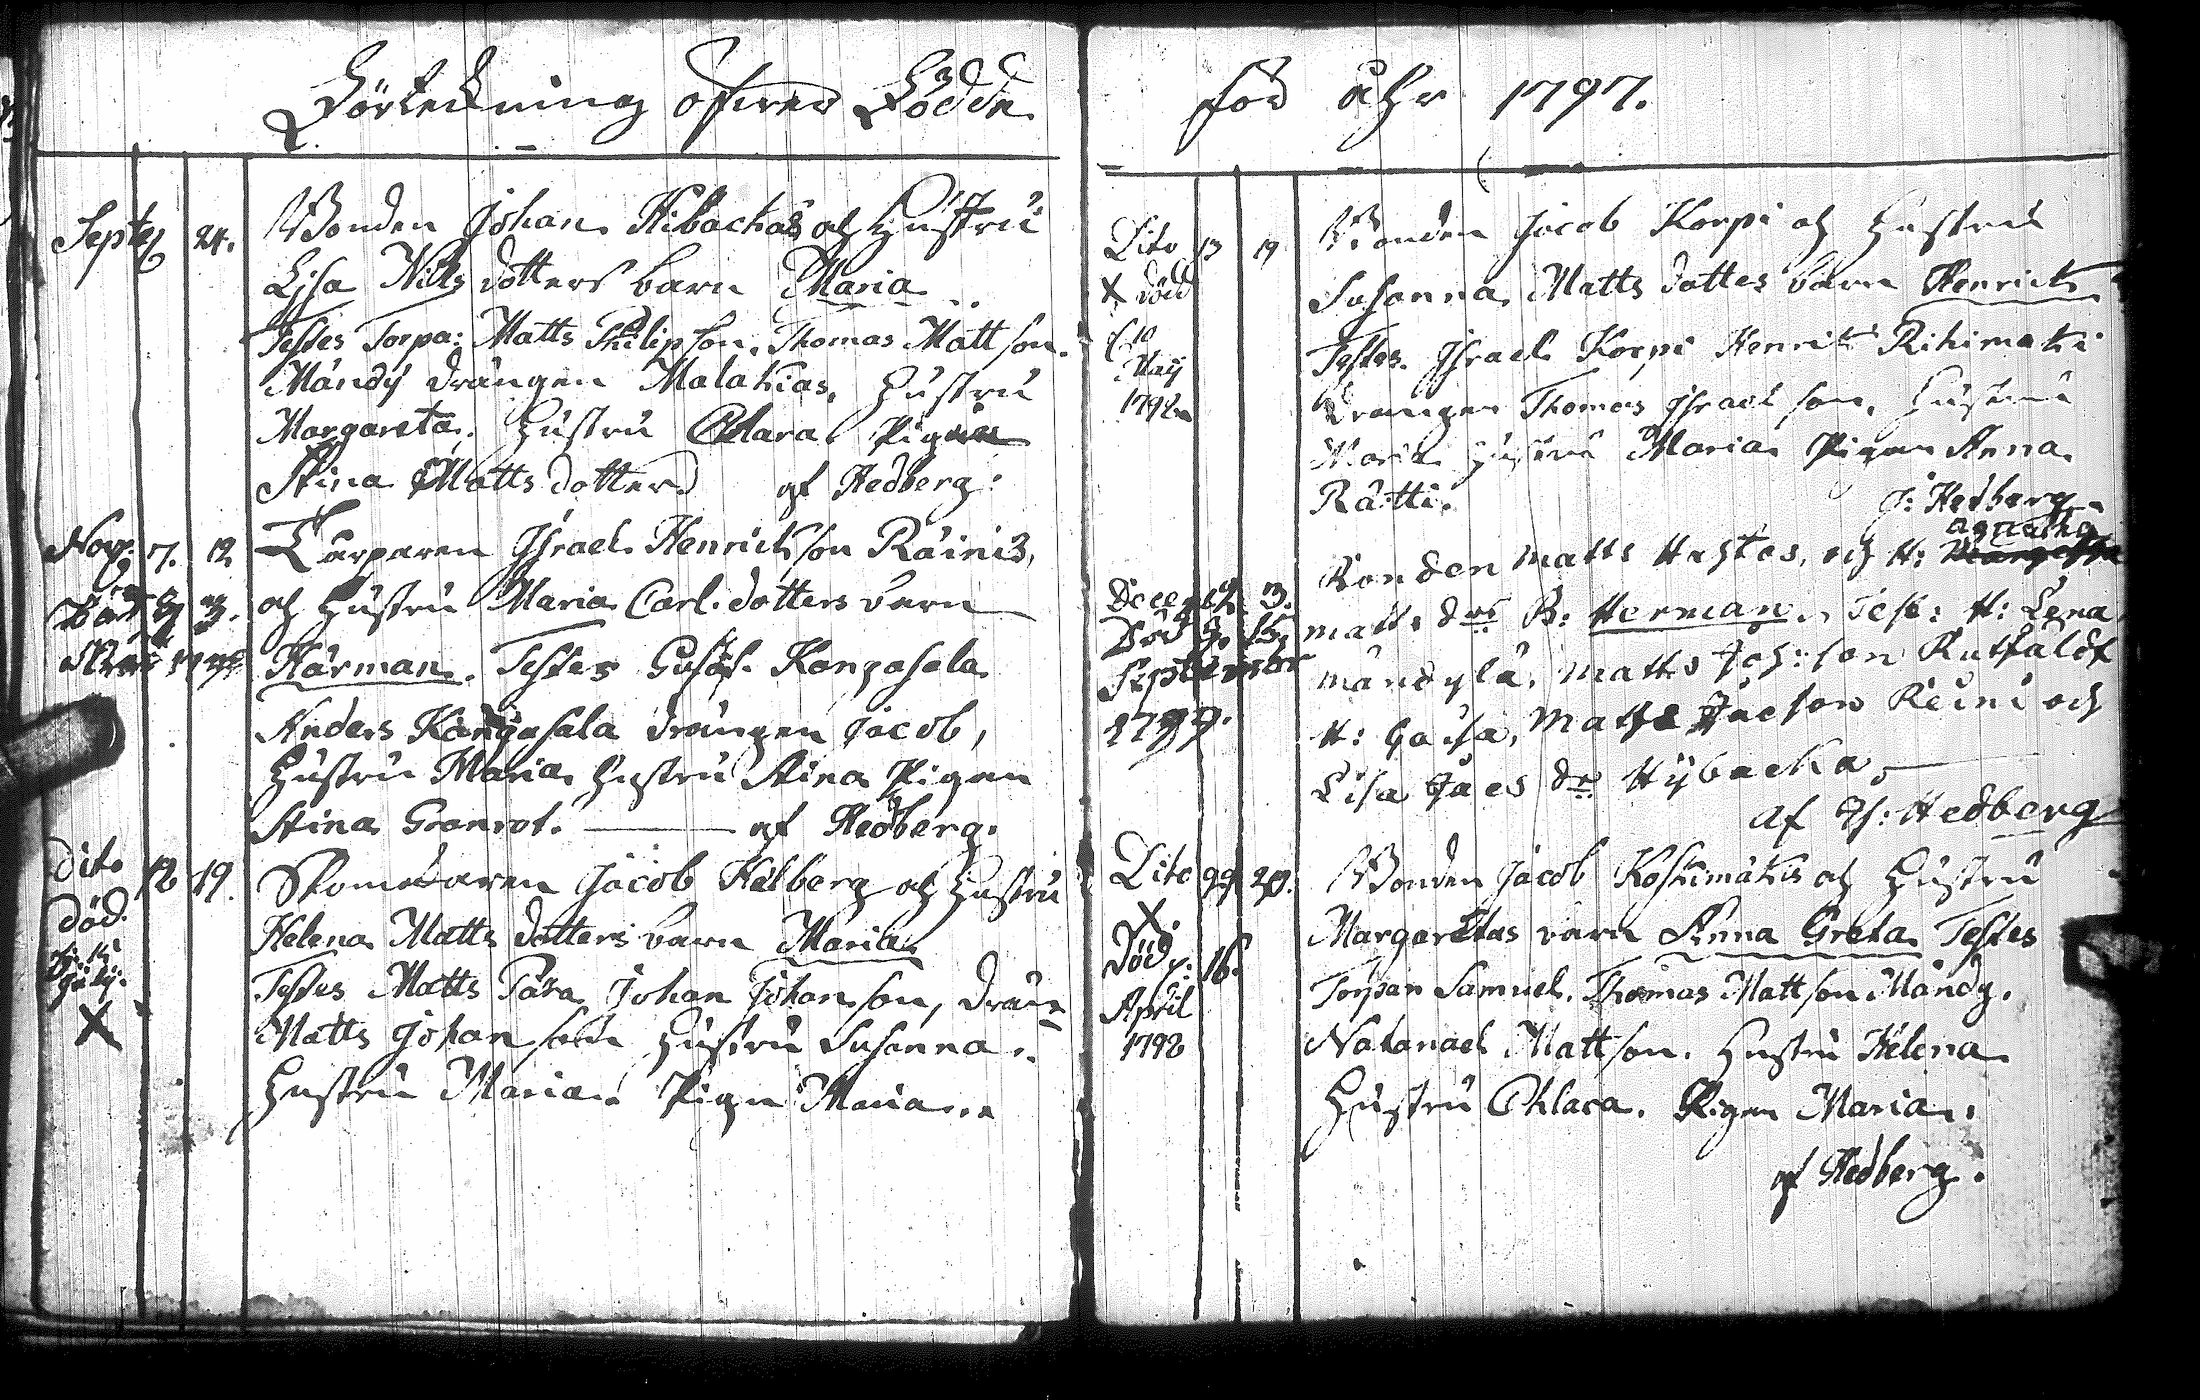 Förteckning öfwer Födde
Septe 24. Bonden Johan Hibackas och Hustru
Lisa Nils dotters barn Maria
Testes Torpa: Matts Philipson, Thomas Mattson
Mändy drängen Malakias, Hustru
Margareta, Hustru Chlara Pigan
Stina Matts dotter af Hedberg:
Nov: 7. 12. Torparen Israel Henrickson Räinis,
Död 3. och Hustru Maria Carl dotters barn
Härman. Testes Gustaf Kangasala
Anders Kangasala drängen Jacob,
Hustru Maria Hustru Stina Pigan
Stina Granrot. af Hedberg.
dito 12 19. Skomakaren Jacob Helberg och Hustru
död. Helena Matts dotters barn Maria
July. Testes Matts Para Johan Johanson, drän
X Matts Johanson Hustru Susanna
Hustru Maria Pigan Maria
för åhr 1797.
Dito 13 19 Bonden Jacob Korpi och Hustru
X död Susanna Matts dotters barn Henrick
10 Testes. Israel Korpi Henrik Rihimaki
Maij Drängen Thomas Israelson, Hustru
1798 Maria Hustru Maria Pigan Anna
Rätti. J: Hedberg
agnetha
Decemb 2. 3. Bonden Matts Hastos, och H:
Död d. 15. Matts drs B: Herman, Test: H: Lena
September Mändylä, Matts Joh:son Rutfäldt
1799. H: Caisa, Matts Jacson Reini och
Lisa Jacs dr Hybacka,
af Js: Hedberg
Dito 29 29. Bonden Jacob Koskimäkis och Hustru
X. Margaretas barn Anna Greta Testes
Död 16. Torpan Samuel, Thomas Mattson Mändy.
April Natanael Mattson. Hustru Helena
1798 Hustru Chlara. Pigan Maria.
af Hedberg.